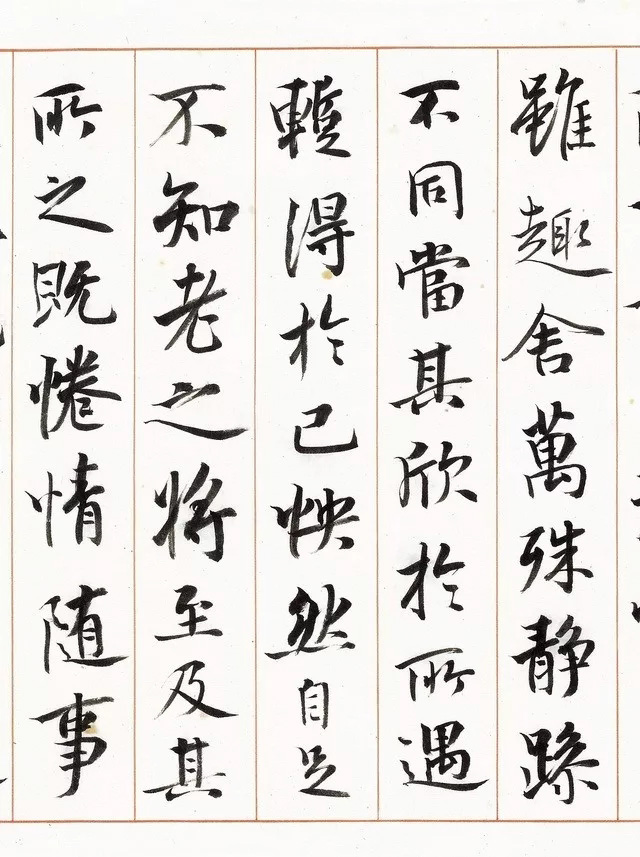 雖趣舍萬殊静躁
不同當其欣於所遇
蹔得於己怏然自足
不知老之将至及其
所之既惓情随事